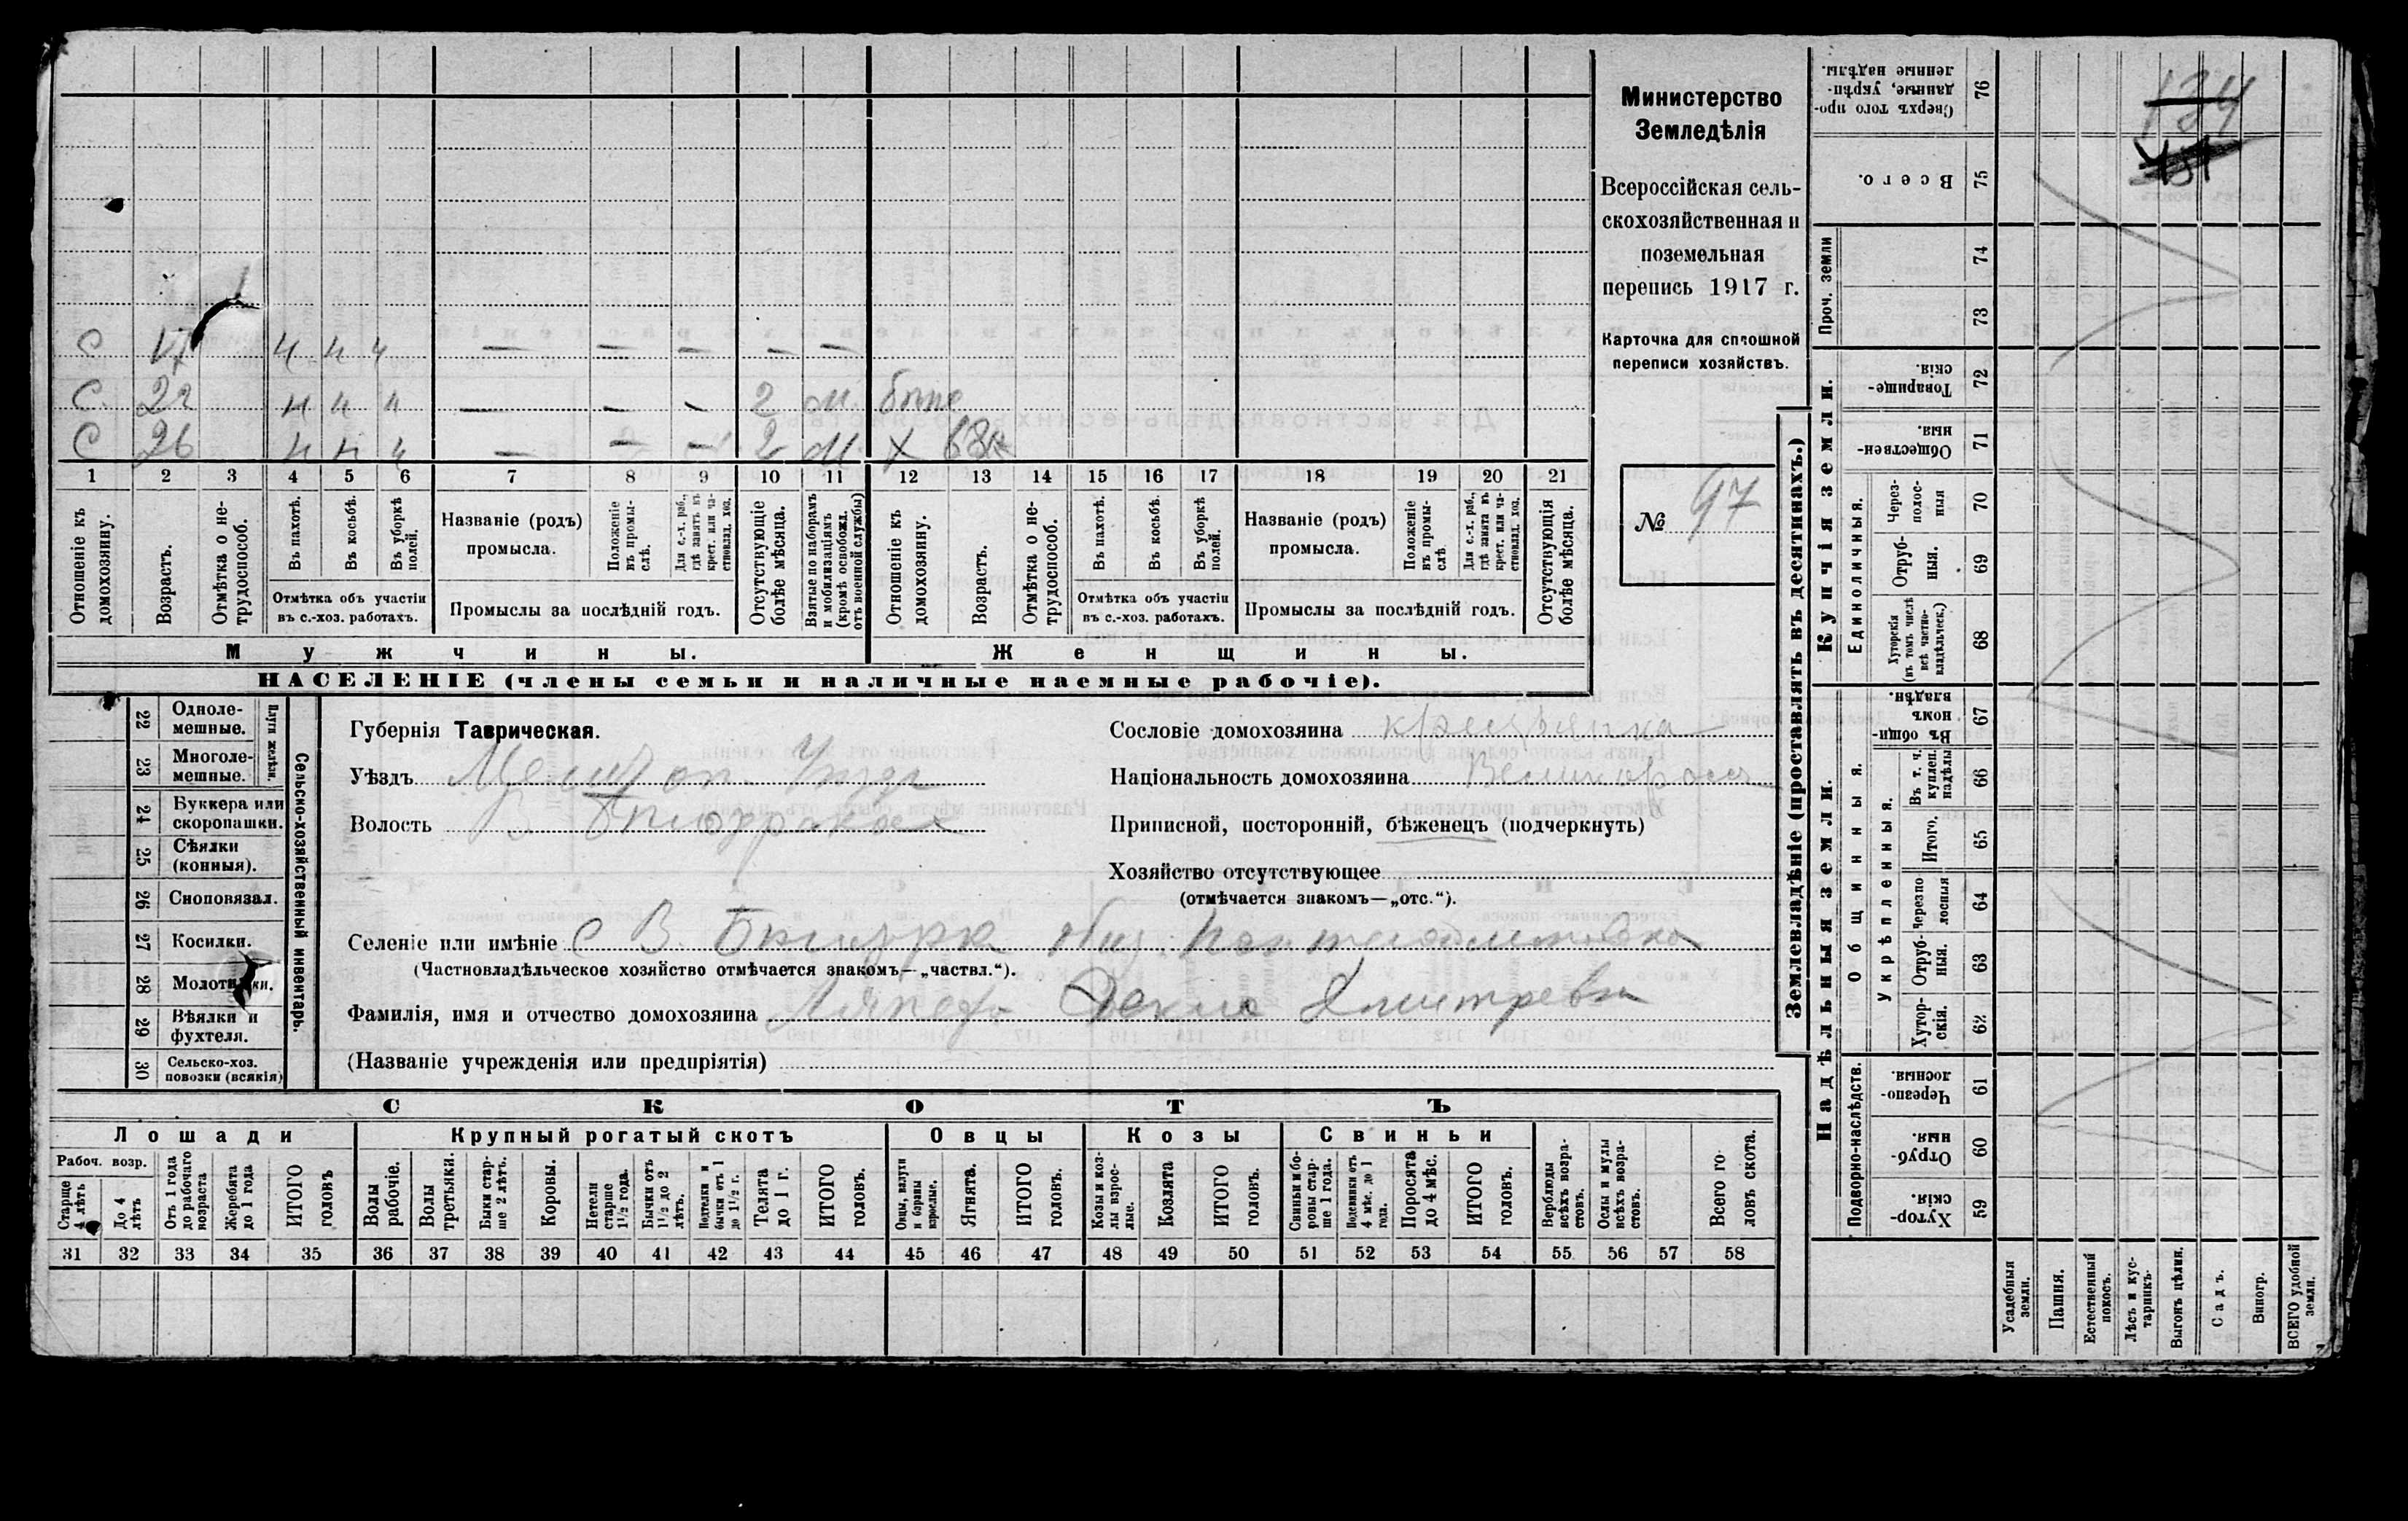 Министерство
Земледѣлія
Всероссійская сель-
скохозяйственная и
поземельная
перепись 1917 г.
Карточка для сплошной
переписи хозяйствъ.
№ 97
134
С 17 ч ч ч — — — — —
С 22 ч ч ч — — — 2 м.
С 26 ч ч ч — — — 2 м. Х 63
1 2 3 4 5 6 7 8 9 10 11 12 13 14 15 16 17 18 19 20 21
Отношеніе къ домохозяину.
Возрастъ.
Отмѣтка о не-трудоспособ.
Въ пахотѣ.
Въ косьбѣ.
Въ уборкѣ полей.
Отмѣтка объ участіи въ с.-хоз. работахъ.
Названіе (родъ) промысла.
Положеніе въ промы-слѣ.
Для с.-х. раб., гдѣ занятъ въ крест. или ча-стновлад. хоз.
Промыслы за послѣдній годъ.
Отсутствующіе болѣе мѣсяца.
Взятые по наборамъ и мобилизаціямъ (кромѣ освобожд. отъ военной службы)
Отношеніе къ домохозяину.
Возрастъ.
Отмѣтка о не-трудоспособ.
Въ пахотѣ.
Въ косьбѣ.
Въ уборкѣ полей.
Отмѣтка объ участіи въ с.-хоз. работахъ.
Названіе (родъ) промысла.
Положеніе въ промы-слѣ
Для с.-х. раб., гдѣ занята въ крест. или ча-стновлад. хоз.
Промыслы за послѣдній годъ.
Отсутствующія болѣе мѣсяца.
Мужчины.
Женщины.
НАСЕЛЕНІЕ (члены семьи и наличные наемные рабочіе).
Сельско-хозяйственный инвентарь.
Плуги желѣзн.
22 Одноле-мешные.
23 Многоле-мешные.
24 Буккера или скоропашки.
25 Сѣялки (конныя).
26 Сноповязал.
27 Косилки.
28 Молотилки.
29 Вѣялки и фухтеля.
30 Сельско-хоз. повозки (всякія)
Губернія Таврическая.
Уѣздъ Мелитоп.
Волость
Сословіе домохозяина крестьянка
Національность домохозяина Великоросс
Приписной, посторонній, бѣженецъ (подчеркнуть)
Хозяйство отсутствующее
(отмѣчается знакомъ—„отс.“).
Селеніе или имѣніе С В.
(Частновладѣльческое хозяйство отмѣчается знакомъ—„частвл.“).
Фамилія, имя и отчество домохозяина Дмитревна
(Названіе учрежденія или предпріятія)
СКОТЪ
Лошади
Крупный рогатый скотъ
Овцы
Козы
Свиньи
Рабоч. возр.
Старше 4 лѣтъ
До 4 лѣтъ
Отъ 1 года до рабочаго возраста
Жеребята до 1 года
ИТОГО головъ
Волы рабочіе.
Волы третьяки.
Быки стар-ше 2 лѣтъ.
Коровы.
Нетели старше 1½ года.
Бычки отъ 1½ до 2 лѣтъ.
Подтелки и бычки отъ 1 до 1½ г.
Телята до 1 г.
ИТОГО головъ.
Овцы, валухи и бараны взрослые.
Ягнята.
ИТОГО головъ.
Козы и коз-лы взрос-лые.
Козлята
ИТОГО головъ.
Свиньи и бо-ровы стар-ше 1 года.
Подсвинки отъ 4 мѣс. до 1 года.
Поросята до 4 мѣс.
ИТОГО головъ.
Верблюды всѣхъ возра-стовъ.
Ослы и мулы всѣхъ возра-стовъ.
Всего го-ловъ скота.
31 32 33 34 35 36 37 38 39 40 41 42 43 44 45 46 47 48 49 50 51 52 53 54 55 56 57 58
Землевладѣніе (проставлять въ десятинахъ.)
Купчія земли.
Надѣльныя земли.
Сверхъ того про-данные, укрѣп-ленные надѣлы. 76
Всего. 75
Проч. земли
74
73
Товарище-скія. 72
Обществен-ныя. 71
Единоличныя.
Через-полос-ныя 70
Отруб-ныя. 69
Хуторскія (въ томъ числѣ всѣ частно-владѣльческ.) 68
Общинныя.
Въ общин-номъ владѣн. 67
Укрѣпленныя.
Въ т. ч. куплен. надѣлы 66
Итого. 65
Черезпо лосныя 64
Отруб-ныя. 63
Хутор-скія. 62
Подворно-наслѣдств.
Черезпо-лосныя. 61
Отруб-ныя. 60
Хутор-скія. 59
Усадебныя земли.
Пашня.
Естественный покосъ.
Лѣсъ и кус-тарникъ.
Выгонъ цѣлин.
Садъ.
Виногр.
ВСЕГО удобной земли.